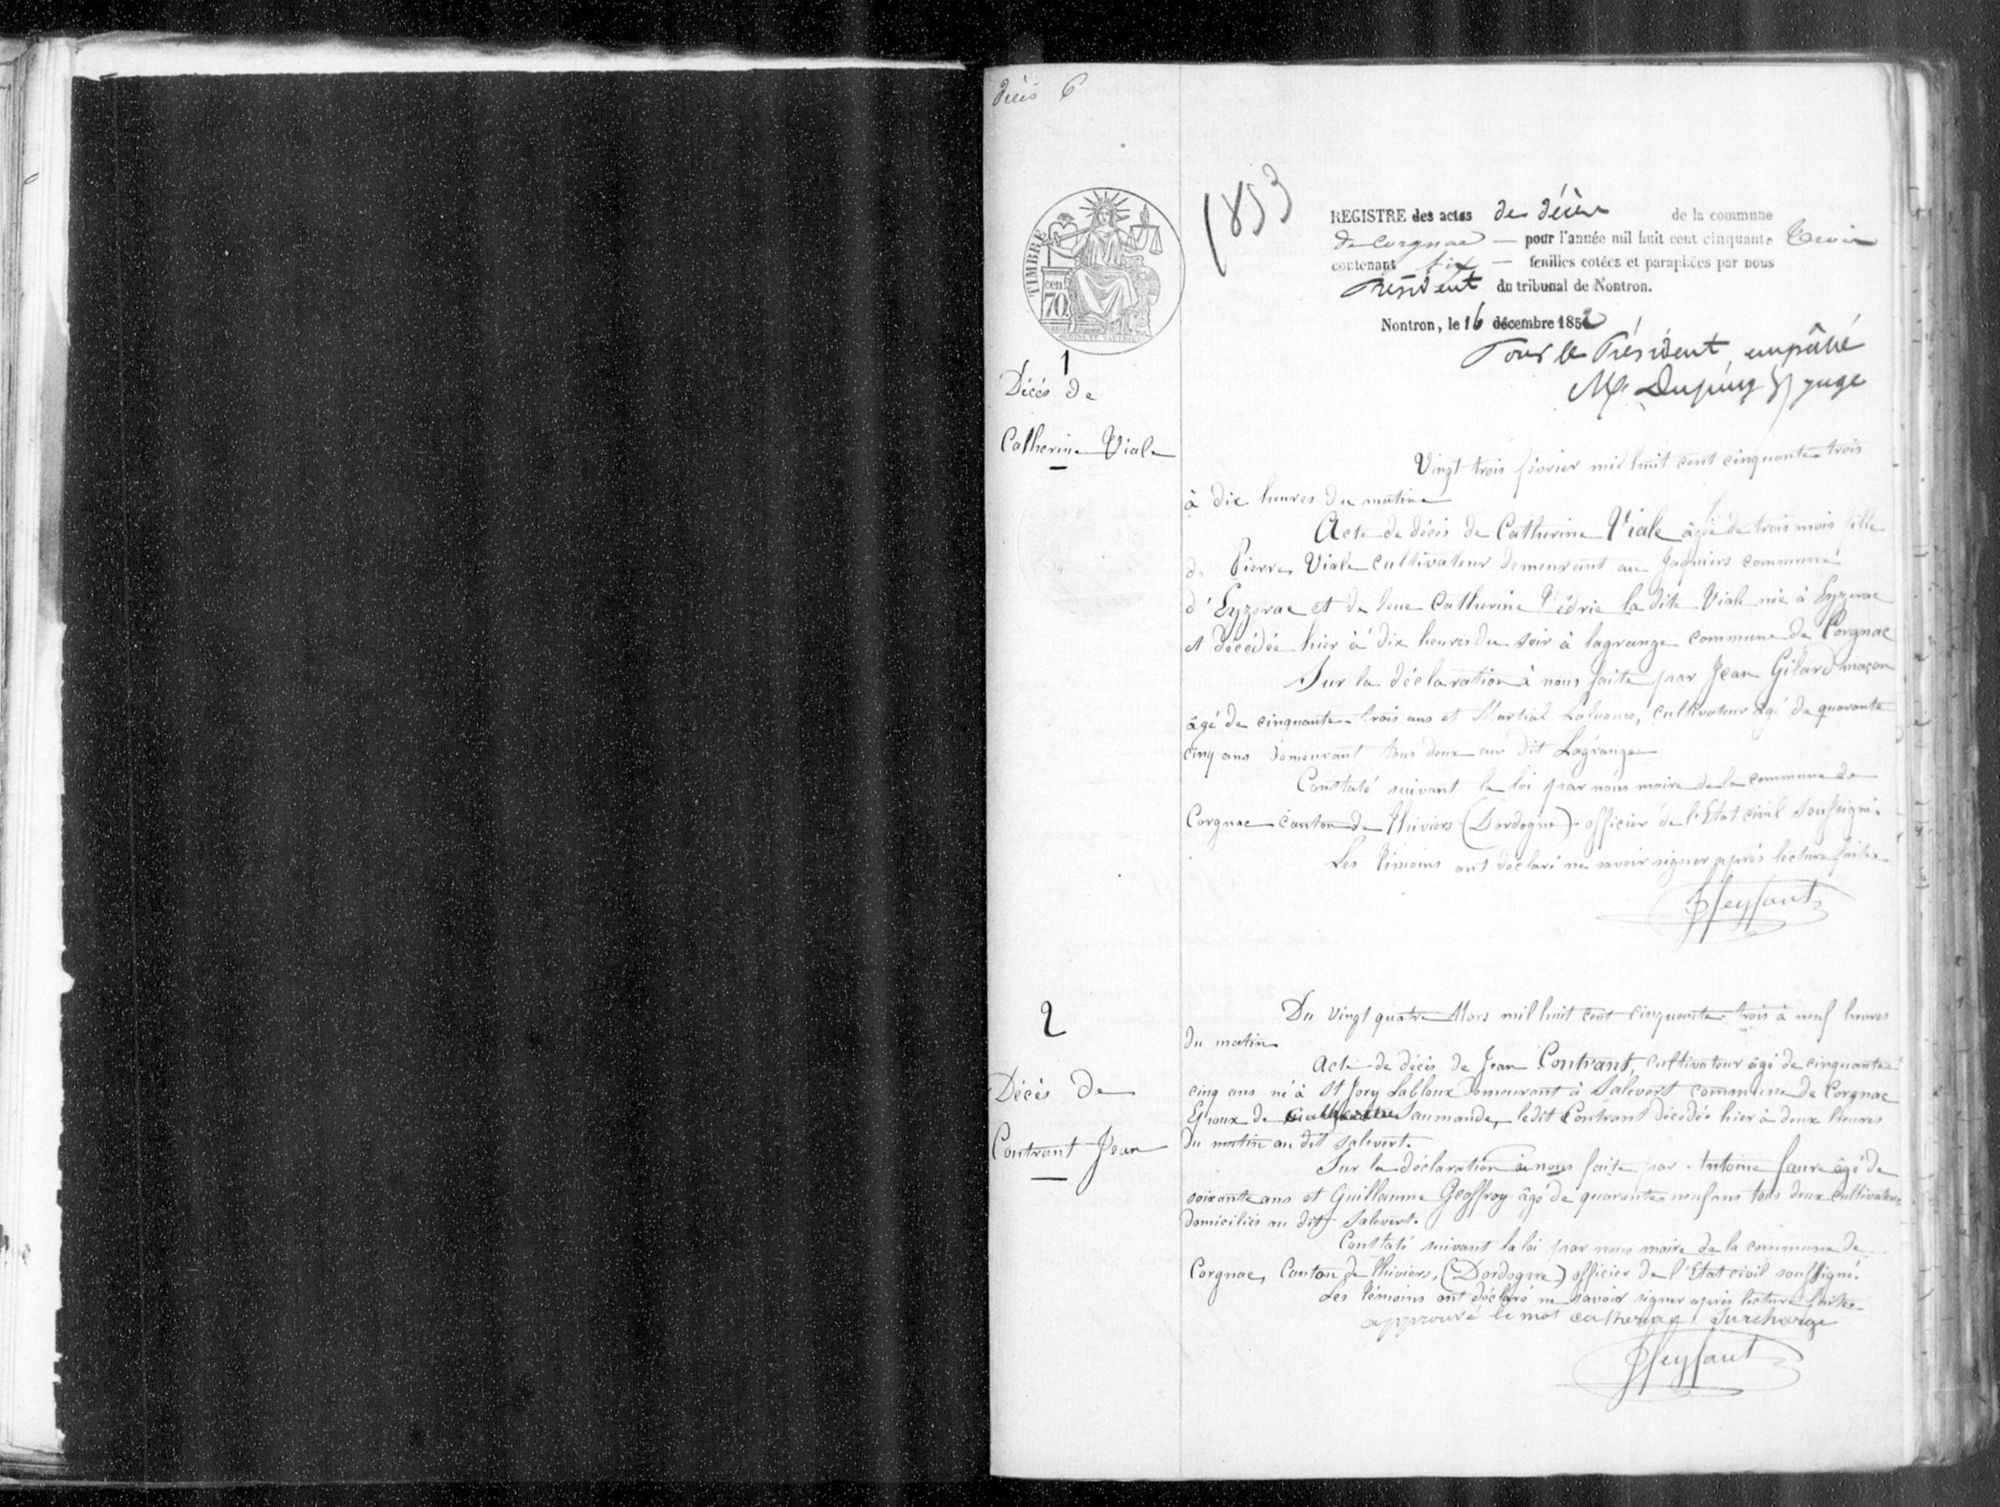 décès 6
1853
TIMBRE
cen.
70
REGISTRE des actes de décès de la commune
de Corgnac — pour l'année mil huit cent cinquante trois
contenant six — feuilles cotées et paraphées par nous
Président du tribunal de Nontron.
Nontron, le 16 décembre 1852
Pour le Président, empêché
juge
1
Décès de
Catherine Viale
Vingt trois février mil huit cent cinquante trois
à dix heures du matin
Acte de décès de Catherine Viale âgée de trois mois fille
de Pierre Viale cultivateur demeurant au commune
d'Eyzerac et de Catherine la dite Viale née à Eyzerac
et décédée hier à dix heures du soir à lagrange commune de Corgnac
Sur la déclaration à nous faite par Jean Gilard maçon
âgé de cinquante trois ans et Martial cultivateur âgé de quarante
cinq ans demeurant tous deux au dit Lagrange
Constaté suivant la loi par nous maire de la commune de
Corgnac canton de Thiviers (Dordogne) officier de l'Etat civil soussigné.
Les témoins ont déclaré ne savoir signer après lecture faite
2
Décès de
Contrant Jean
Du vingt quatre Mars mil huit cent cinquante trois à neuf heures
du matin
Acte de décès de Jean Contrant, cultivateur âgé de cinquante
cinq ans né à St Jory Labloux demeurant à Salevert commune de Corgnac
Epoux de Catherine Saumande, ledit Contrant décédé hier à deux heures
du matin au dit Salevert.
Sur la déclaration à nous faite par Antoine faure âgé de
soixante ans et Guillaume Geoffroy âgé de quarante neuf ans tous deux cultivateurs
domiciliés au dit Salevert.
Constaté suivant la loi par nous maire de la commune de
Corgnac, Canton de Thiviers, (Dordogne) officier de l'Etat civil soussigné.
Les témoins ont déclaré ne savoir signer après lecture faite
approuvé le mot catherine surchargé